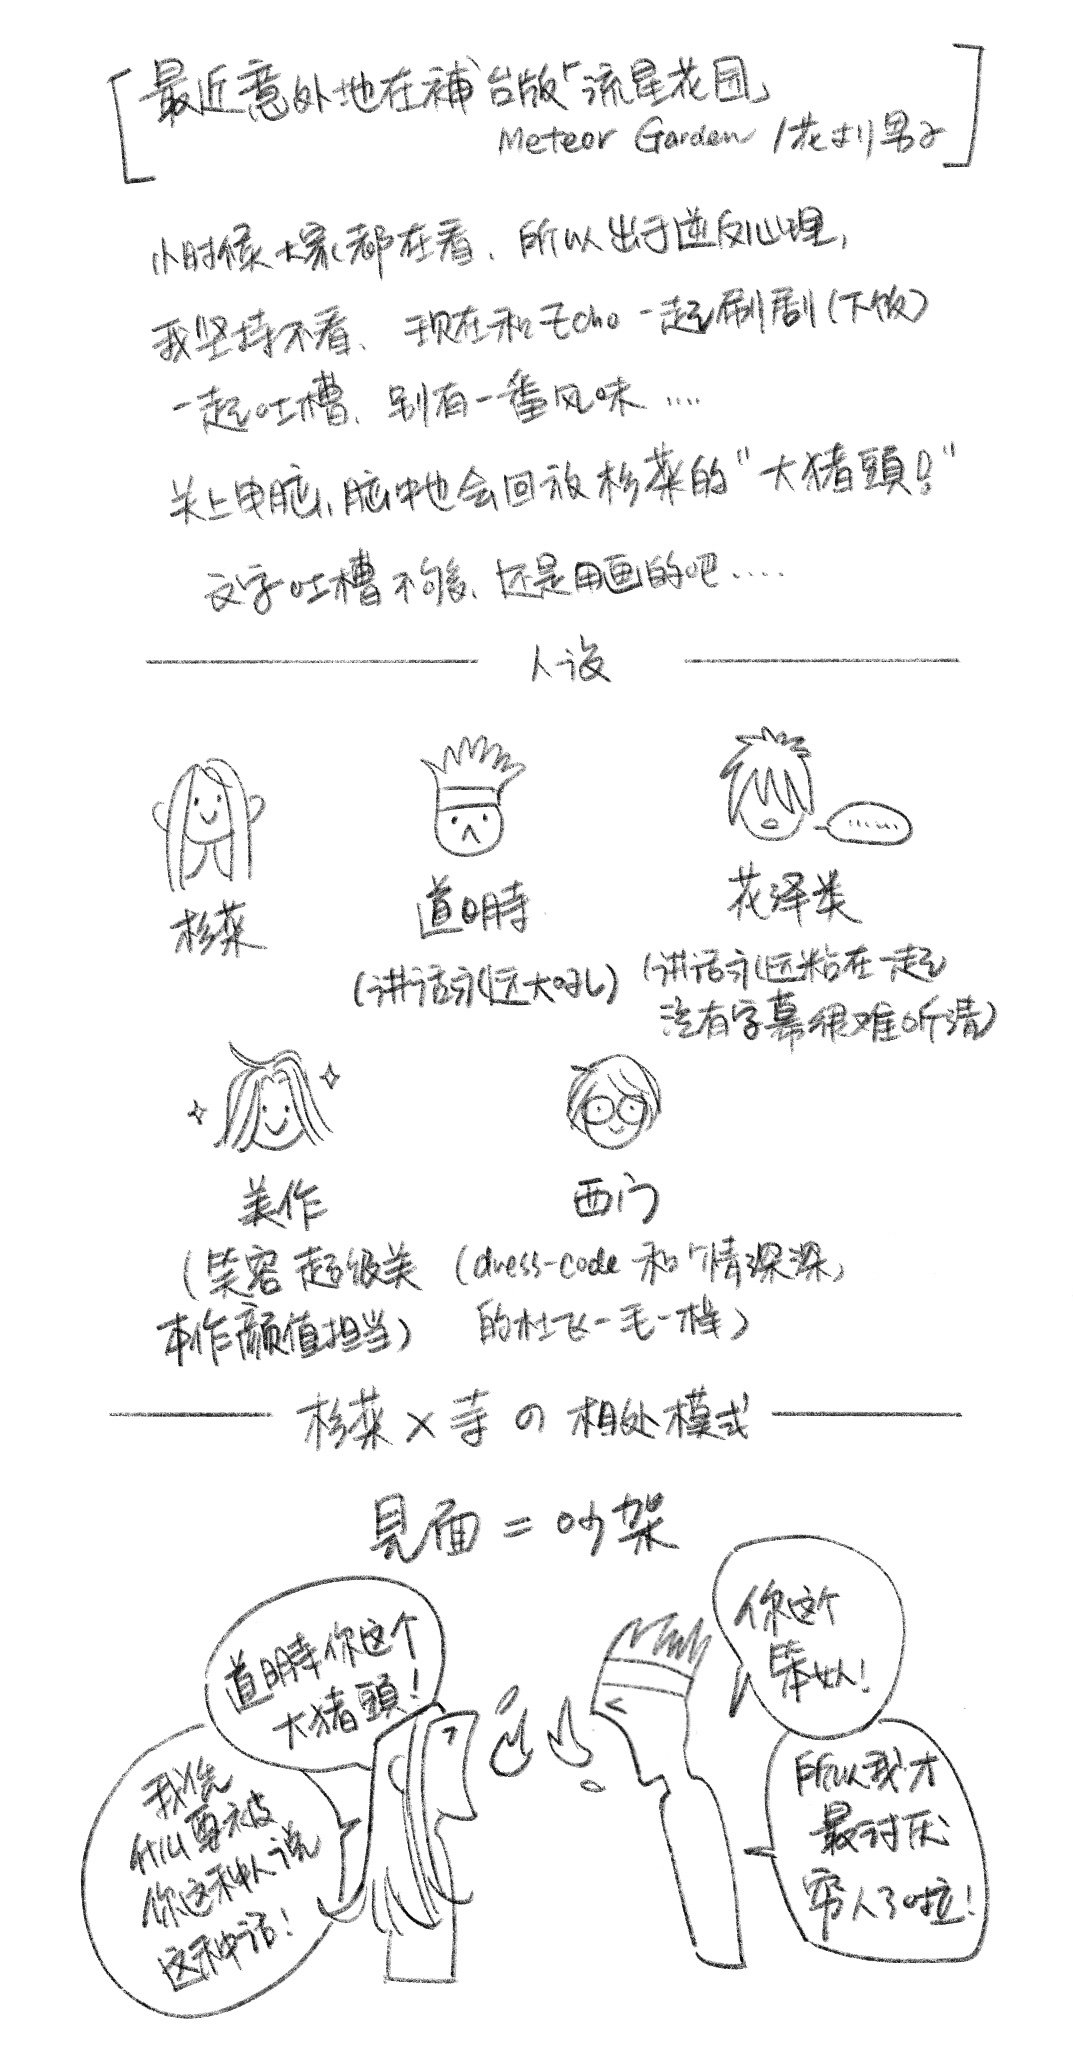 最近意外地在補台版「流星花园」
Meteor Garden / 花より男子
小时候大家都在看、所以出于逆反心理,
我坚持不看、现在和Echo一起刷剧(下饭)
一起吐槽、别有一番风味....
关上电脑、脑中也会回放杉菜的"大猪頭!"
文字吐槽不够、还是用画的吧....
人设
杉菜
道明寺
(讲话永远大吼)
......
花泽类
(讲话永远粘在一起
没有字幕很难听清)
美作
(笑容超级美
本作颜值担当)
西门
(dress-code和「情深深」
的杜飞一毛一样)
杉菜×寺の相处模式
見面=吵架
道明寺你这个
大猪頭!
我凭
什么要被
你这种人说
这种话!
你这个
笨女人!
所以我才
最讨厌
穷人了啦!